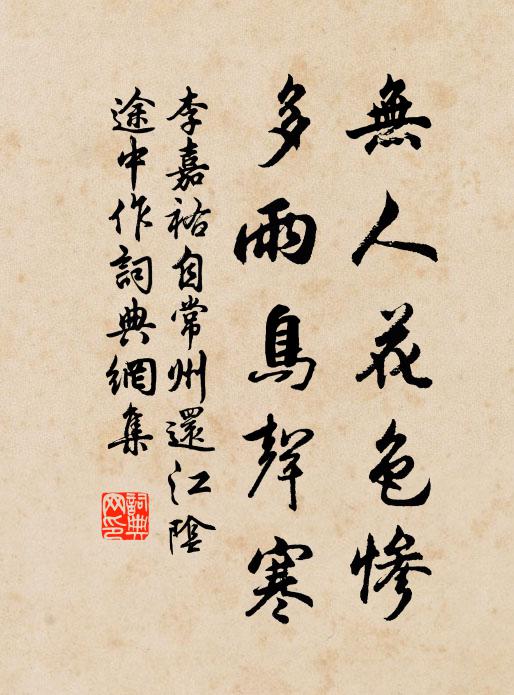 無人花色慘
多雨鳥聲寒
李嘉祐自常州還江陰
途中作詞典網集
詞典
网印